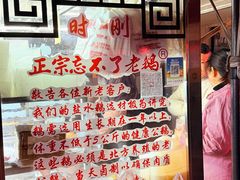 时 刚
正宗忘不了老妈®
敬告各位新老客户:
我们的盐水鹅选材极为讲究
鹅需选用生长期在一年以上,
体重不低于5公斤的健康公鹅,
这些鹅必须是北方养殖的老
鹅,当天卤制以确保肉质